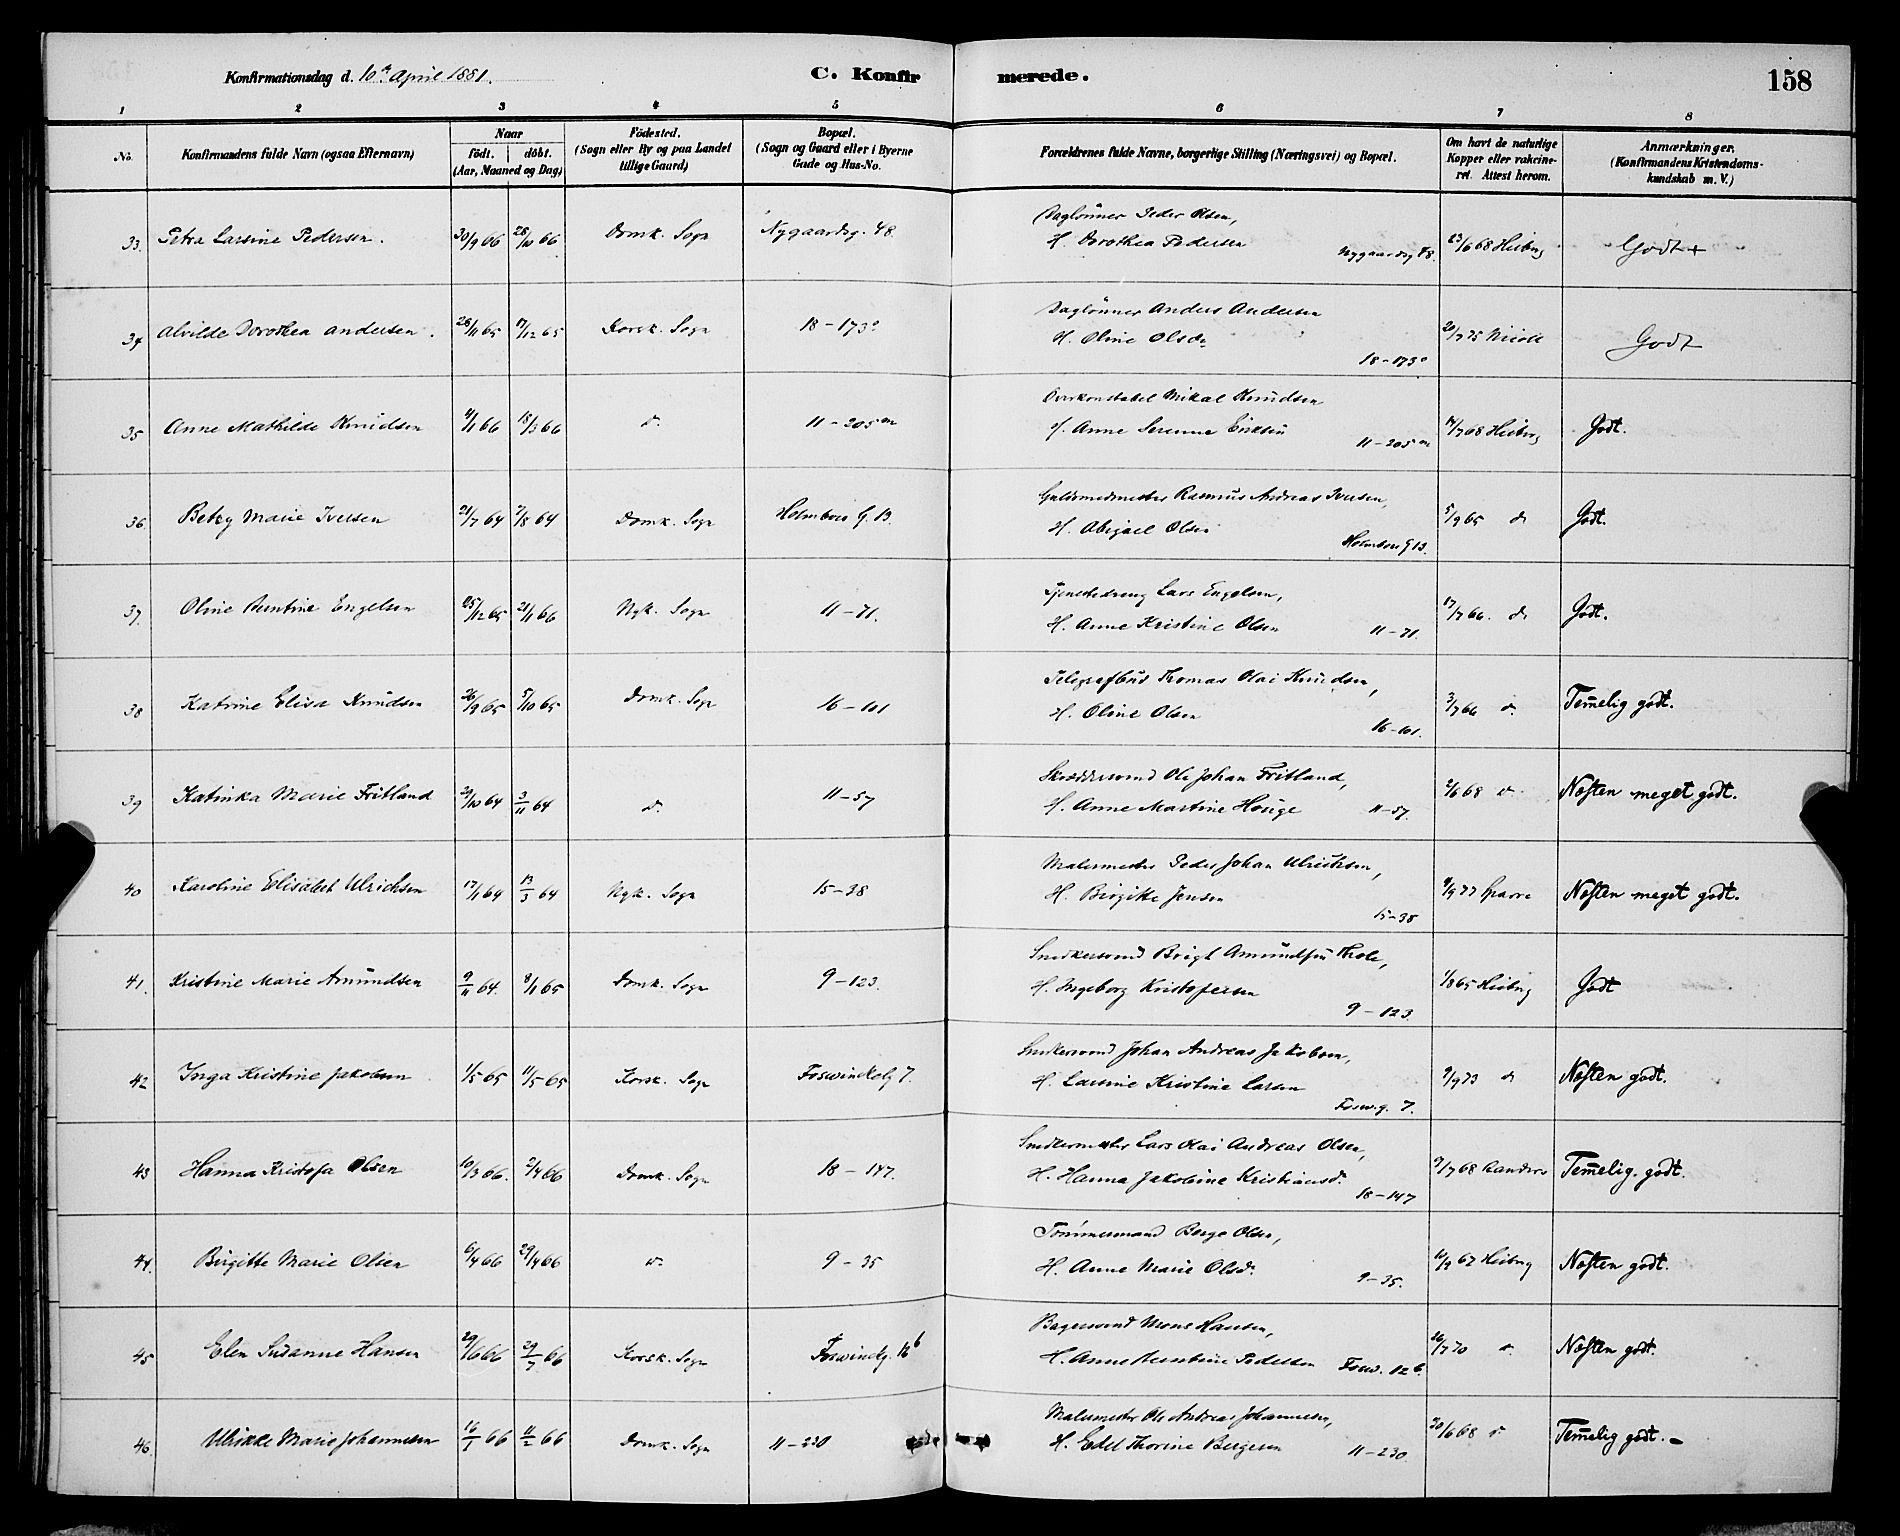 Konfirmationsdag d. 10de April 1881.
C. Konfirmerede.
158
1 2 3 4 5 6 7 8
No.
Konfirmandens fulde Navn (ogsaa Efternavn)
Naar
födt. döbt.
(Aar, Maaned og Dag)
Födested.
(Sogn eller By og paa Landet
tillige Gaard)
Bopæl.
(Sogn og Gaard eller i Byerne
Gade og Hus-No.
Forældrenes fulde Navne, borgerlige Stilling (Næringsvei) og Bopæl.
Om havt de naturlige
Kopper eller vakcine-
ret. Attest herom.
Anmærkninger.
(Konfirmandens Kristendoms-
kundskab m. V.)
33. Petra Larsine Pedersen. 30/9 66 28/10 66 Domk. Sogn Nygaardsg. 48.
Daglönner Peder Olsen,
H. Dorothea Pedersen
Nygaardsg 48. 23/6 68 Heiberg Godt+
34 Alvilde Dorothea Andersen. 28/11 65 17/12 65 Korsk. Sogn 18-173
Daglönner Anders Andersen
H. Oline Olsdr
18-173 20/7 75 Godt
35 Anne Mathilde Knudsen 4/1 66 18/3 66 d. 11-205
Overkonstabel Mikal Knudsen
H. Anne Serenne Eriksen
11-205 14/7 68 Heiberg Godt.
36 Betzy Marie Iversen 21/7 64 7/8 64 Domk. Sogn Holmboes G. 13.
Guldsmedmester Rasmus Andreas Iversen,
H. Abigael Olsen
Holmboes G 13. 5/9 65 do Godt.
37. Oline Engelsen 25/12 65 21/1 66 Nyk. Sogn 11-71.
Tjenestedreng Lars Engelsen,
H. Anne Kristine Olsen 11-71. 17/7 66. do Godt.
38 Katrine Elisa Knudsen 26/9 65 5/10 65 Domk. Sogn 16-101
Telegrafbud Thomas Olai Knudsen,
H. Oline Olsen
16-101. 3/7 66 d. Temelig godt.
39 Katinka Marie Fritland 29/10 64 3/11 64 d. 11-57
Skræddersvend Ole Johan Fritland,
H. Anne Martine Houge 11-57. 2/6 68 d. Næsten meget godt.
40 Karoline Elisabet Ulrichsen 17/1 64 13/3 64 Nyk. Sogn 15-38
Malermester Peder Johan Ulrichsen,
H. Birgitte Jensen
15-38 4/9 77 Næsten meget godt.
41. Kristine Marie Amundsen 9/11 64. 8/1 65 Domk. Sogn 9-123.
Snedkersvend Brigt Amundsen
H. Ingeborg Kristofersen
9-123. 1/8 65 Heiberg Godt
42 Inga Kristine Jakobsen 1/5 65 11/5 65 Korsk. Sogn Foswindelg 7.
Snedkersvend Johan Andreas Jakobsen,
H. Larsine Kristine Larsen
Fosw.g. 7. 9/9 73 d. Næsten godt.
43 Hanna Kristofa Olsen 10/3 66. 2/4 66 Domk. Sogn 18-147.
Snedkermester Lars Olai Andreas Olsen,
H. Hanna Jakobine Kristiansd. 18-147 9/7 68 Temelig. godt.
44. Birgitte Marie Olsen 6/4 66 29/4 66 d. 9-35
Tömmermand Berge Olsen,
H. Anne Marie Olsd. 9-35. 10/9 67 Heiberg Næsten godt.
45 Elen Susanne Hansen 29/6 66 29/7 66 Korsk. Sogn Foswindg. 12b
Bagersvend Mons Hansen,
H. Anne Pedersen Fosw. 12b. 26/7 70 d. Næsten godt.
46. Ulrikke Marie Johannesen 16/1 66 11/2 66 Domk. Sogn 11-230
Malermester Ole Andreas Johannesen,
H. Edel Thorine Bergesen 11-230. 30/6 68 d. Temelig godt.-